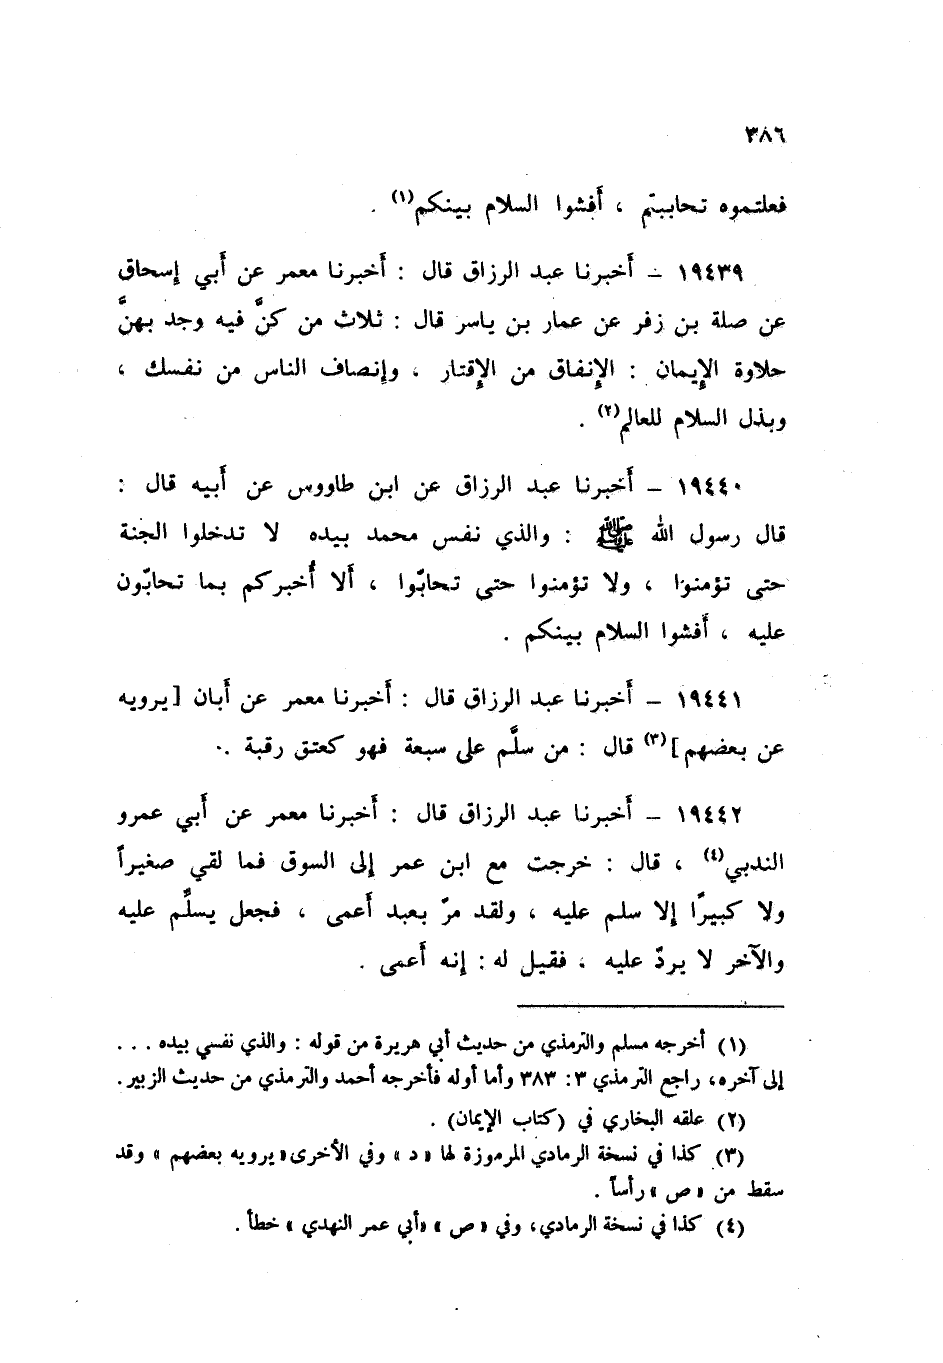 ٣٨٦
فعلتموه تحاببتم ، أفشوا السلام بينكم(١) .
١٩٤٣٩ – أخبرنا عبد الرزاق قال : أخبرنا معمر عن أبي إسحاق
عن صلة بن زفر عن عمار بن ياسر قال : ثلاث من كنَّ فيه وجد بهنَّ
حلاوة الإيمان : الإنفاق من الإقتار ، وإنصاف الناس من نفسك ،
وبذل السلام للعالم(٢) .
١٩٤٤٠ – أخبرنا عبد الرزاق عن ابن طاووس عن أبيه قال :
قال رسول الله ﷺ : والذي نفس محمد بيده لا تدخلوا الجنة
حتى تؤمنوا ، ولا تؤمنوا حتى تحابّوا ، ألا أُخبركم بما تحابّون
عليه ، أفشوا السلام بينكم .
١٩٤٤١ – أخبرنا عبد الرزاق قال : أخبرنا معمر عن أبان [يرويه
عن بعضهم](٣) قال : من سلَّم على سبعة فهو كعتق رقبة .
١٩٤٤٢ – أخبرنا عبد الرزاق قال : أخبرنا معمر عن أبي عمرو
الندبي(٤) ، قال : خرجت مع ابن عمر إلى السوق فما لقي صغيراً
ولا كبيرًا إلا سلم عليه ، ولقد مرّ بعبد أعمى ، فجعل يسلَّم عليه
والآخر لا يردّ عليه ، فقيل له : إنه أعمى .
(١) أخرجه مسلم والترمذي من حديث أبي هريرة من قوله : والذي نفسي بيده . . .
إلى آخره، راجع الترمذي ٣ : ٣٨٣ وأما أوله فأخرجه أحمد والترمذي من حديث الزبير .
(٢) علقه البخاري في (كتاب الإيمان) .
(٣) كذا في نسخة الرمادي المرموزة لها « د » وفي الأخرى «يرويه بعضهم » وقد
سقط من « ص » رأساً .
(٤) كذا في نسخة الرمادي، وفي « ص » «أبي عمر النهدي » خطأ .